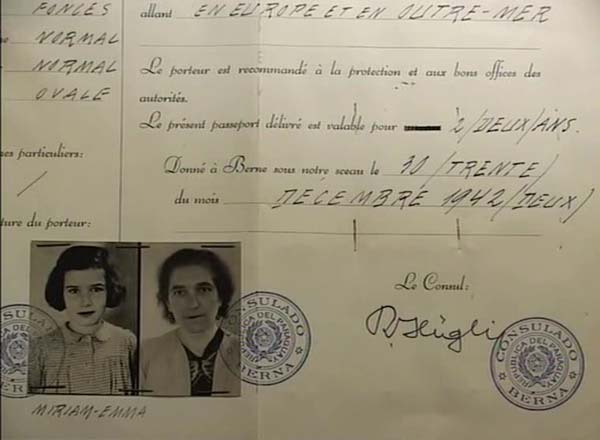 FONCÉS
allant EN EUROPE ET EN OUTRE-MER
NORMAL
NORMAL
Le porteur est recommandé à la protection et aux bons offices des
OVALE
autorités.
Le présent passeport délivré est valable pour 2/DEUX/ANS.
es particuliers:
/
Donné à Berne sous notre sceau le 30/TRENTE/
du mois DECEMBRE 1942/DEUX/
ture du porteur:
Le Consul:
R Hügli
CONSULADO
REPUBLICA DEL PARAGUAY
BERNA
CONSULADO
REPUBLICA DEL PARAGUAY
BERNA
MIRIAM-EMMA